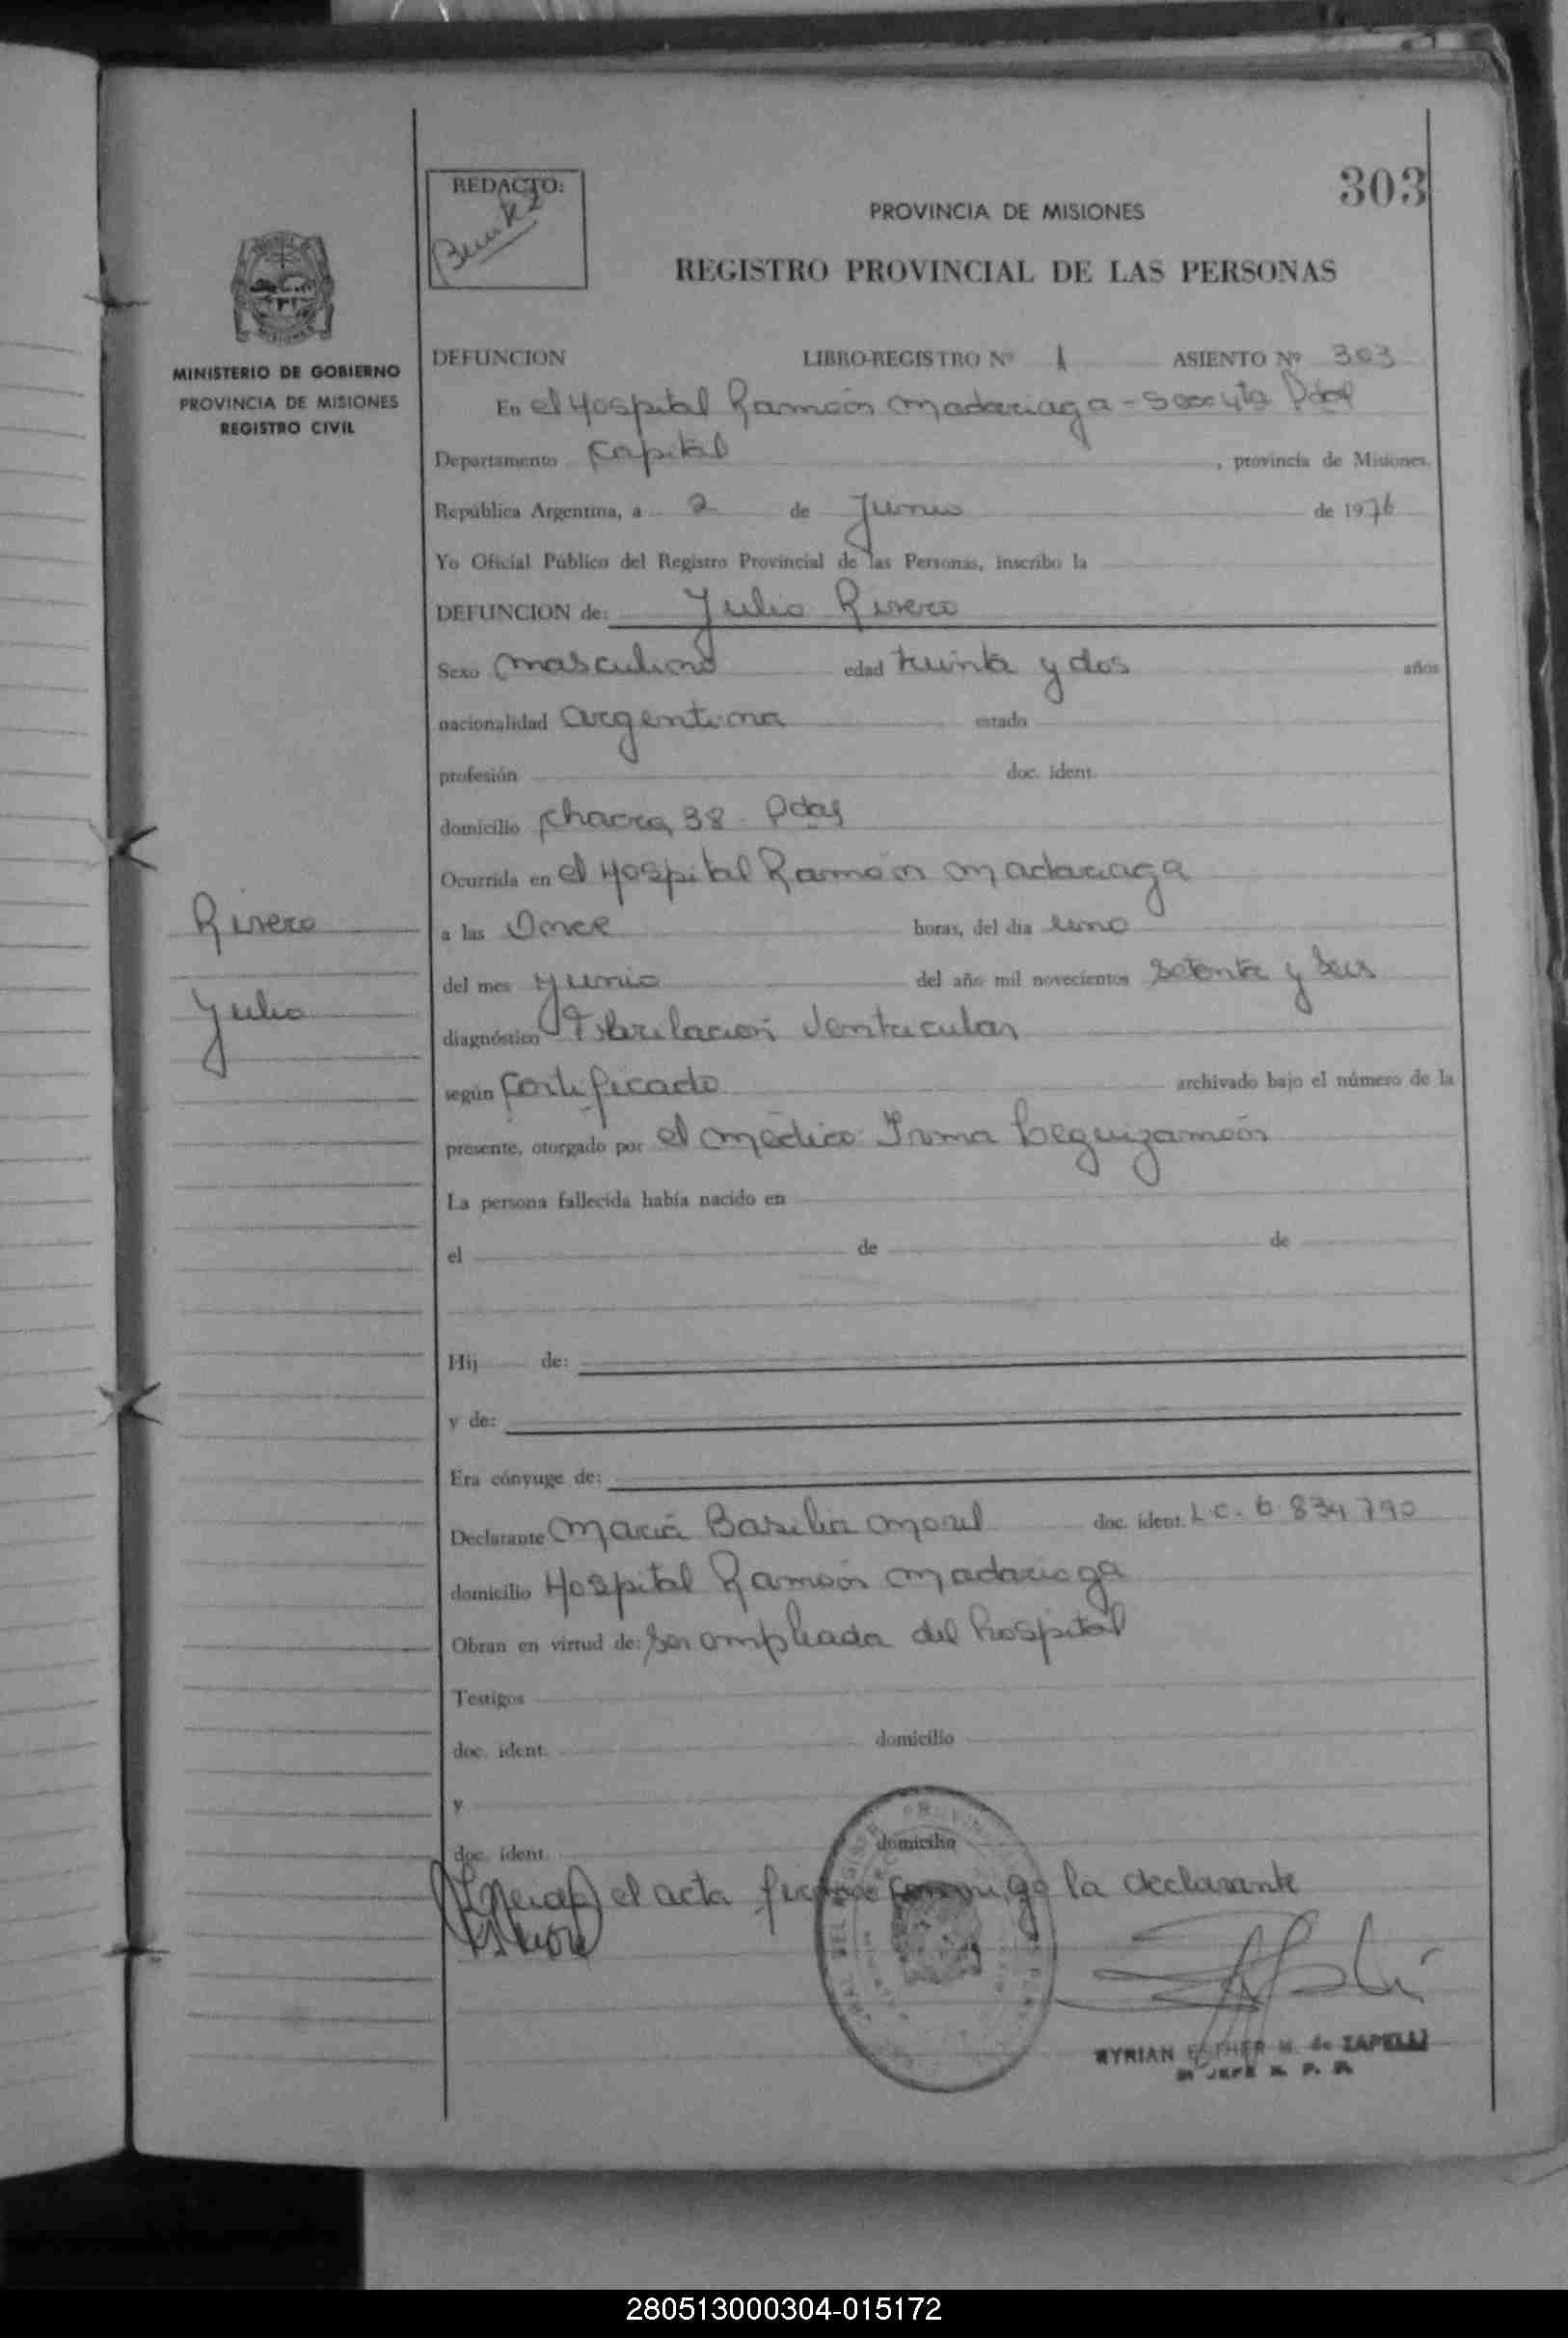 303
REDACTO:
PROVINCIA DE MISIONES
REGISTRO PROVINCIAL DE LAS PERSONAS
MINISTERIO DE GOBIERNO
PROVINCIA DE MISIONES
REGISTRO CIVIL
DEFUNCION LIBRO-REGISTRO Nº 1 ASIENTO Nº 303
En el Hospital Ramón Madariaga - Secc 4ta
Departamento Capital, provincia de Misiones.
República Argentina, a 2 de Junio de 1976
Yo Oficial Público del Registro Provincial de las Personas, inscribo la
DEFUNCION de: Julio Rivero
Sexo masculino edad treinta y dos años
nacionalidad argentina estado
profesión doc. ident.
domicilio chacra 38 - Pdas
Ocurrida en el Hospital Ramón Madariaga
Rivero
a las Once horas, del día uno
del mes Junio del año mil novecientos setenta y seis
Julio
diagnóstico Fibrilación Ventricular
según Certificado archivado bajo el número de la
presente, otorgado por el médico Irma Leguizamón
La persona fallecida había nacido en
el de de
Hij de:
y de:
Era cónyuge de:
Declarante María Basilia Morel doc. ident. L.C. 6 834 790
domicilio Hospital Ramón Madariaga
Obran en virtud de: ser empleada del hospital
Testigos
doc. ident. domicilio
y
doc. ident. domicilio
el acta firma conmigo la declarante
MYRIAN ESTHER M. de ZAPELLI
JEFE R. P. P.
280513000304-015172